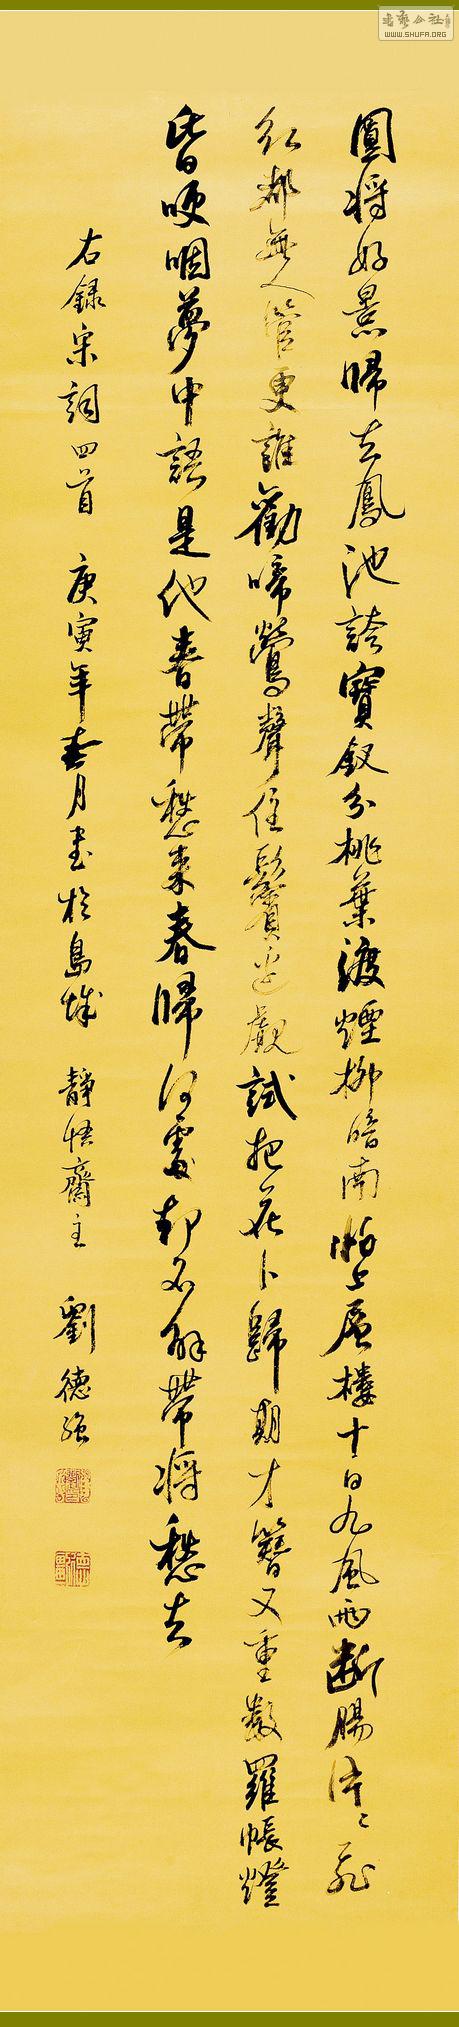 圖將好景歸去鳳池誇寶釵分桃葉渡煙柳暗南浦怕上層樓十日九風雨斷腸片片飛
紅都無人管更誰勸啼鶯聲住鬢邊觀試把花卜歸期才簪又重數羅帳燈
昏哽咽夢中語是他春帶愁來春歸何處却不解帶將愁去
右錄宋詞四首 庚寅年春月書於島城 靜悟齋主 劉德強
WWW.SHUFA.ORG